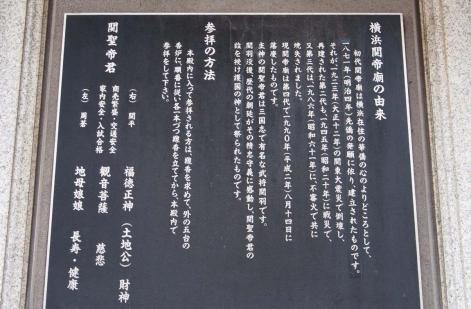 横浜関帝廟の由来
初代関帝廟は横浜在住の華僑の心のよりどころとして、
一八七一年(明治四年)先僑の発願に依り、建立されたものです。
それが一九二三年(大正十二年)の関東大震災で倒壊し、
再建された第二代も、一九四五年(昭和二十年)に戦災で、
又第三代は一九八六年(昭和六十一年)に、不審火で共に
焼失されました。
現関帝廟は第四代で一九九〇年(平成二年)八月十四日に
落慶したものです。
主神の関聖帝君は三国志で有名な武将関羽です。
関羽没後、歴代の朝廷がその精忠守義に感動し、関聖帝君の
諡を授け護国の神として祭られたものです。
参拝の方法
本殿内に入って参拝される方は、線香を求めて、外の五台の
香炉に、順番に従い各一本づつ線香を立ててから、本殿内で
参拝をして下さい。
関聖帝君
(右) 関平
商売繁盛・交通安全
家内安全・入試合格
(左) 周蒼
福徳正神 (土地公) 財神
観音菩薩 慈悲
地母娘娘 長寿・健康